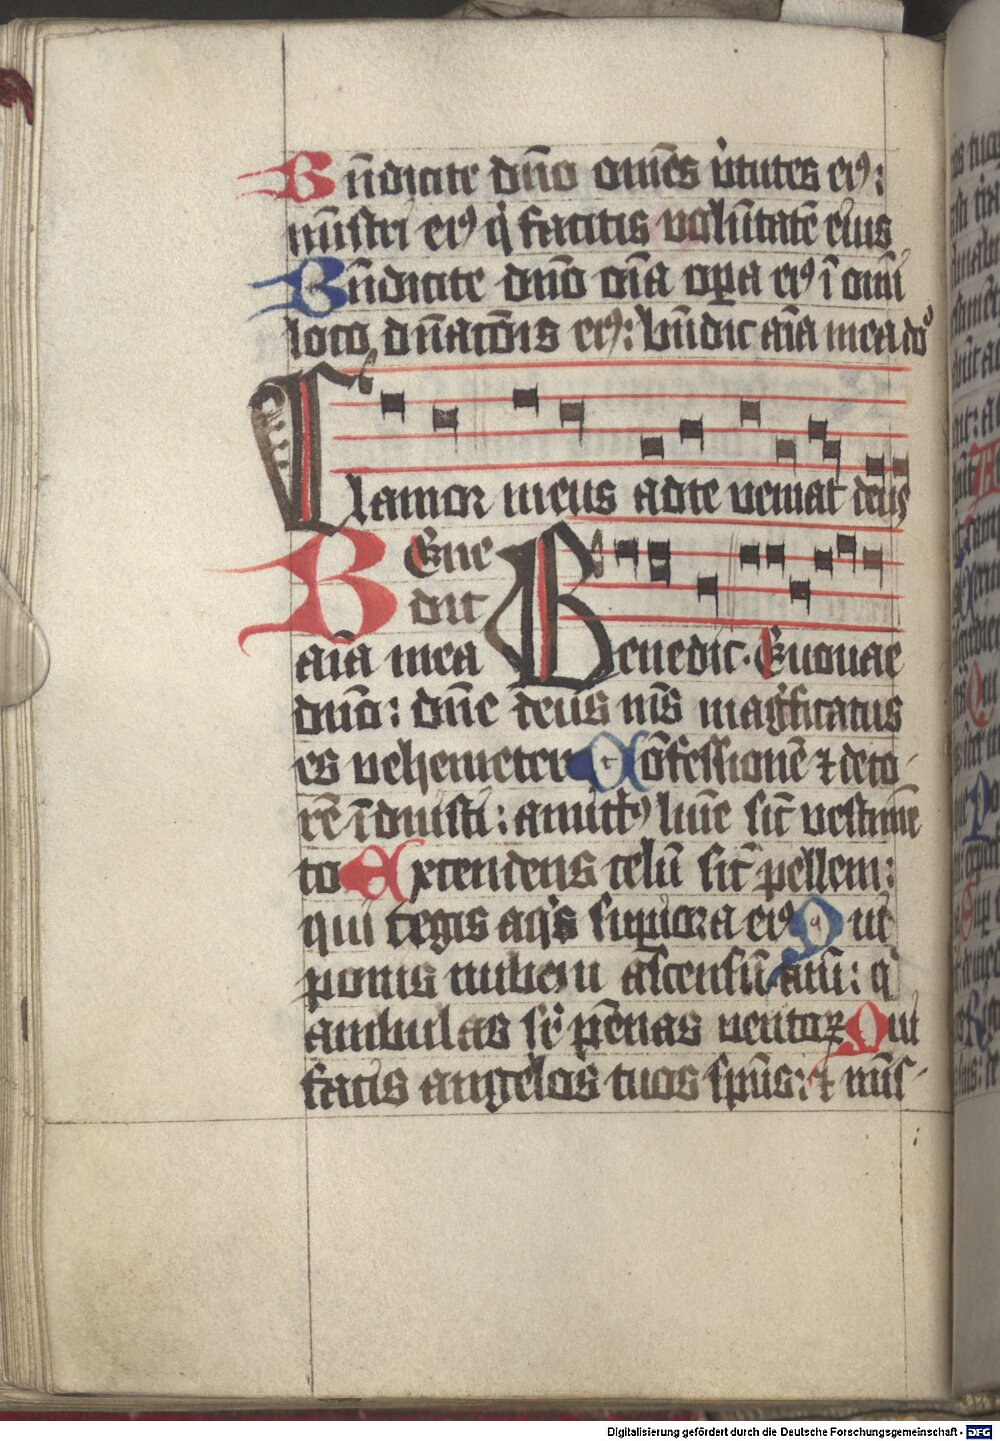 Bn̄dicite dn̄o om̄es v̍tutes eiꝰ:
mīstri eiꝰ q̍ facitis volūtatē eius
Bn̄dicite dn̄o oīa oꝑa eiꝰ ī om̄i
loco dn̄atōis eiꝰ: bn̄dic aīa mea dō
Clamor meus ad te veniat deus
Bene Benedic. Euouae
dic
aīa mea
dn̄o: dn̄e deus m̄s mag̍ficatus
es vehemēter Cōfessionē ⁊ deco-
rē īduisti: amictꝰ lum̄e sic̄ vestimē
to Extendens celū sic̄ pellem:
qui tegis aq̍s supiora eiꝰ Qui
ponis nubem ascensū tuū: q̍
ambulas sr̄ pēnas ventoꝝ Qui
facis angelos tuos sp̄us: ⁊ mīs-
Digitalisierung gefördert durch die Deutsche Forschungsgemeinschaft - DFG